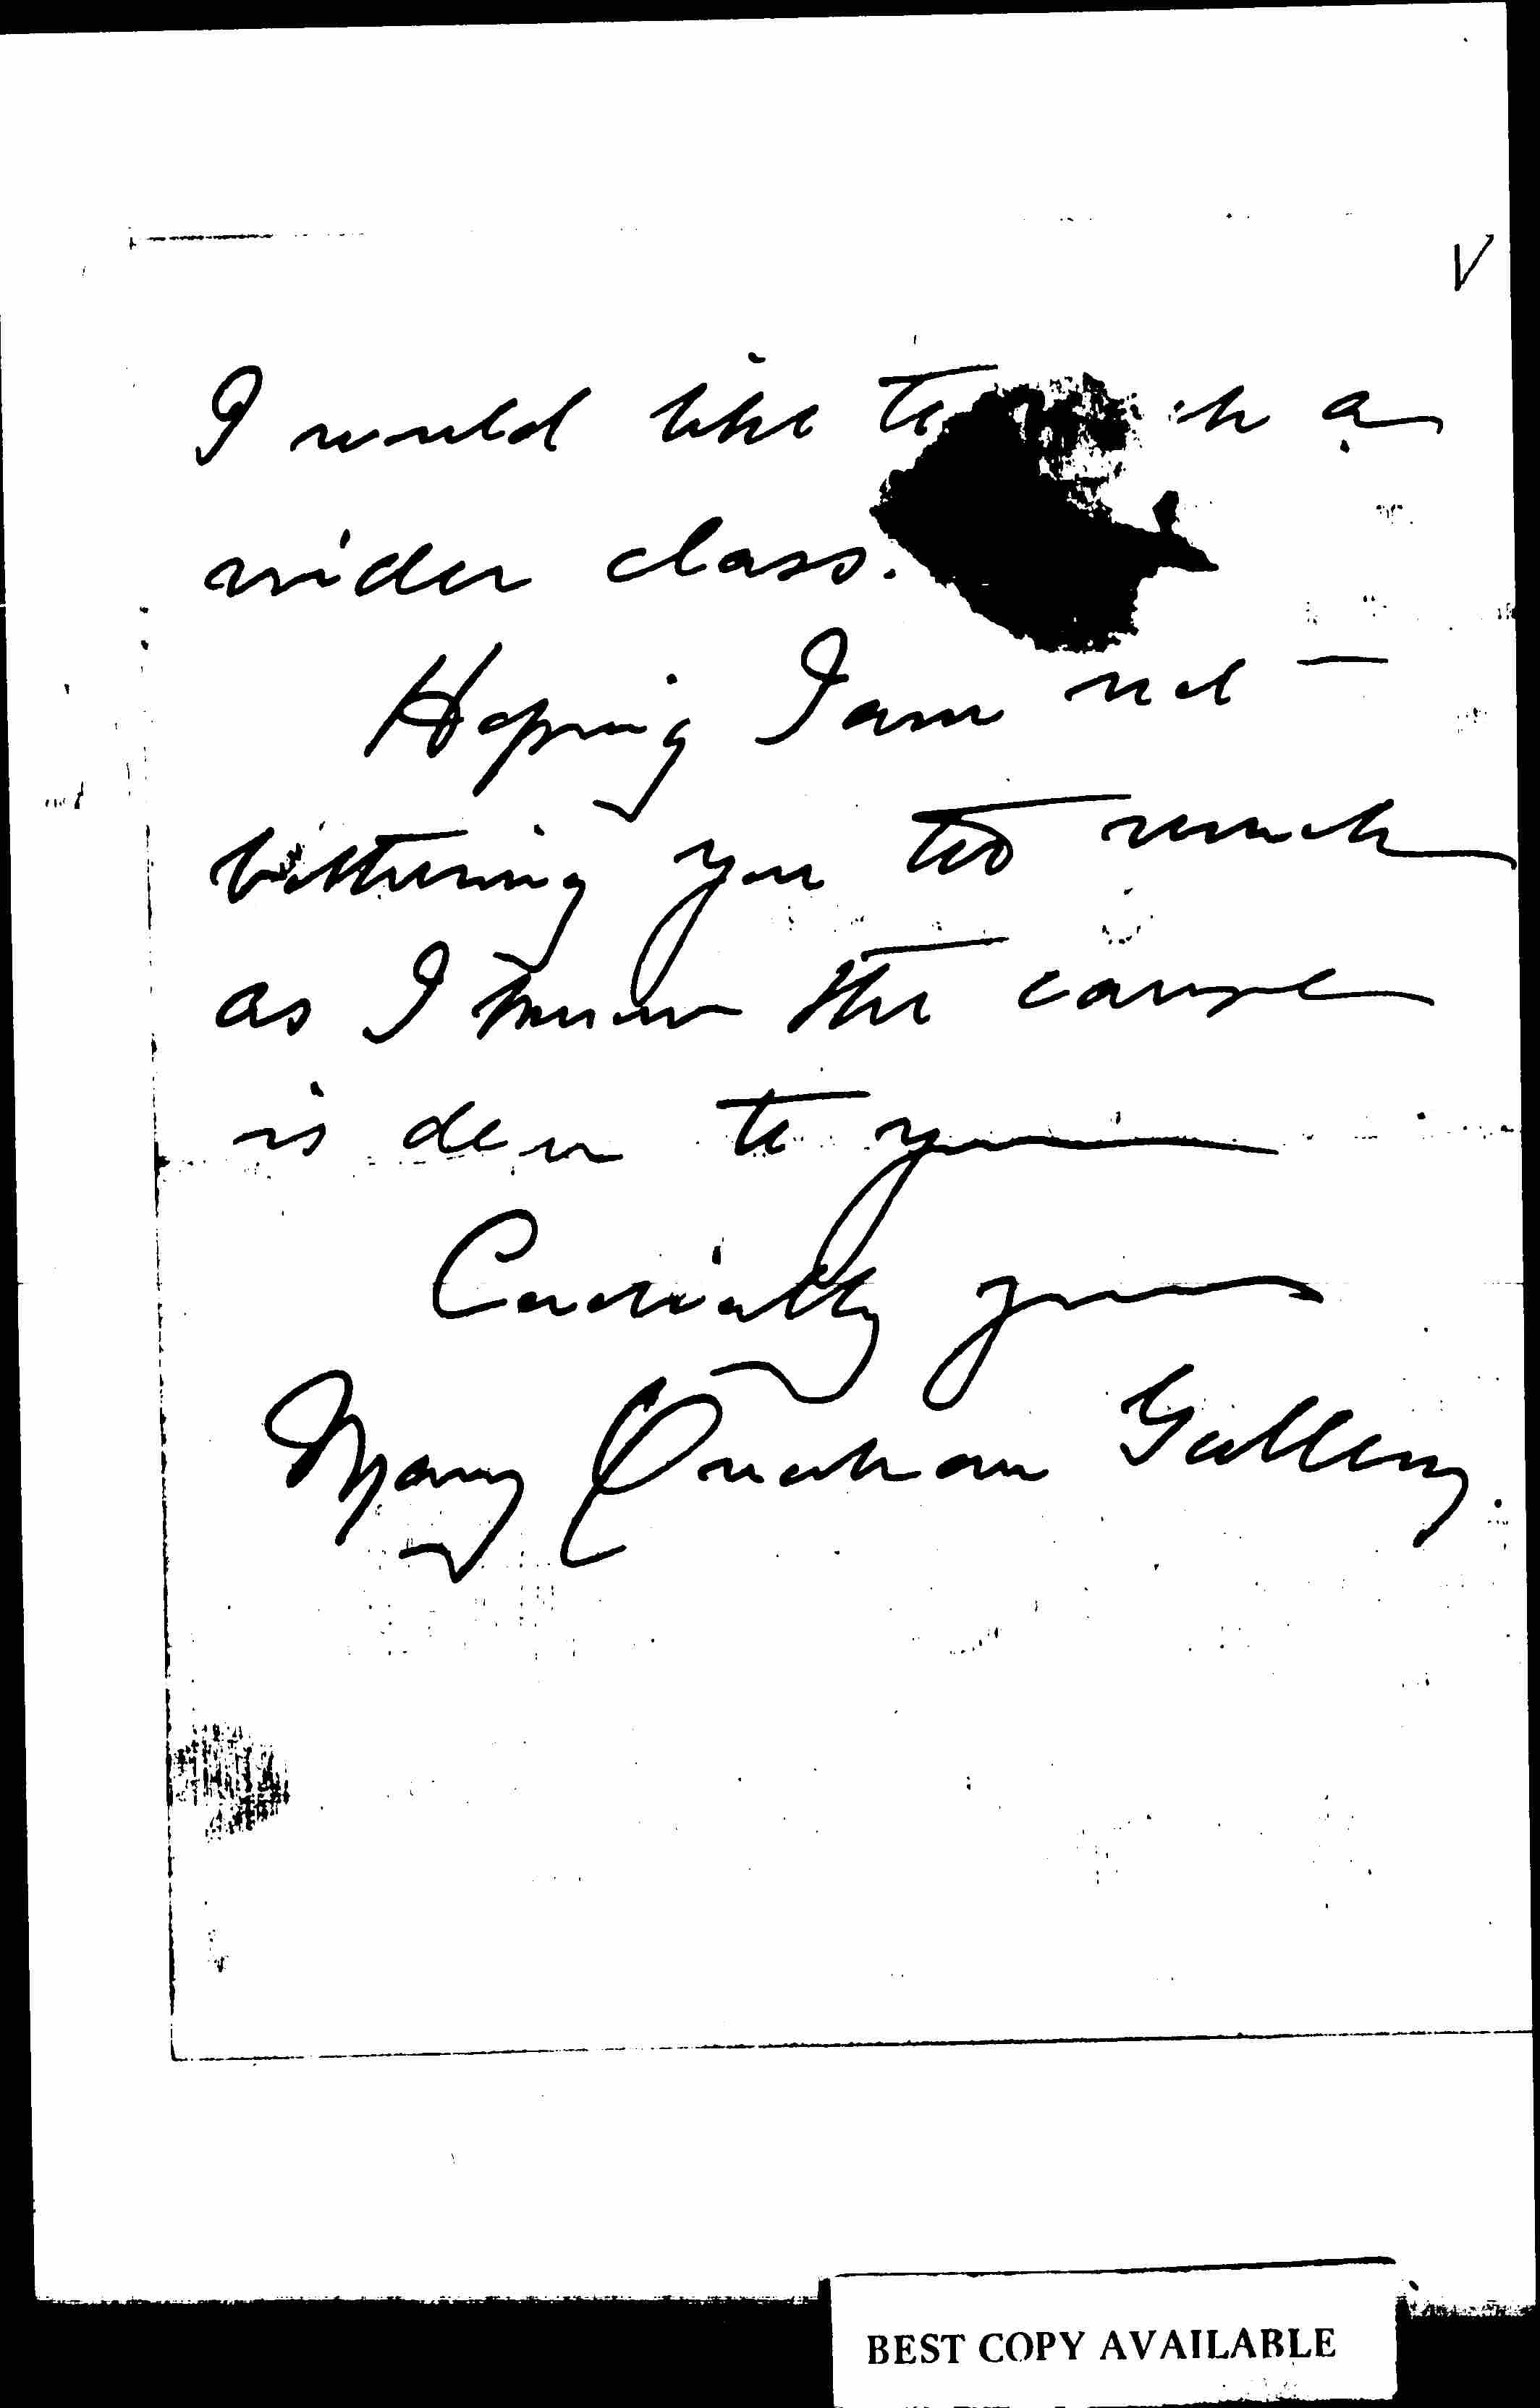 V
I would like to ch a
wider class.
Hoping I am not
bothering you too much
as I know the cause
is dear to you
Cordially yours
Mary
BEST COPY AVAILABLE